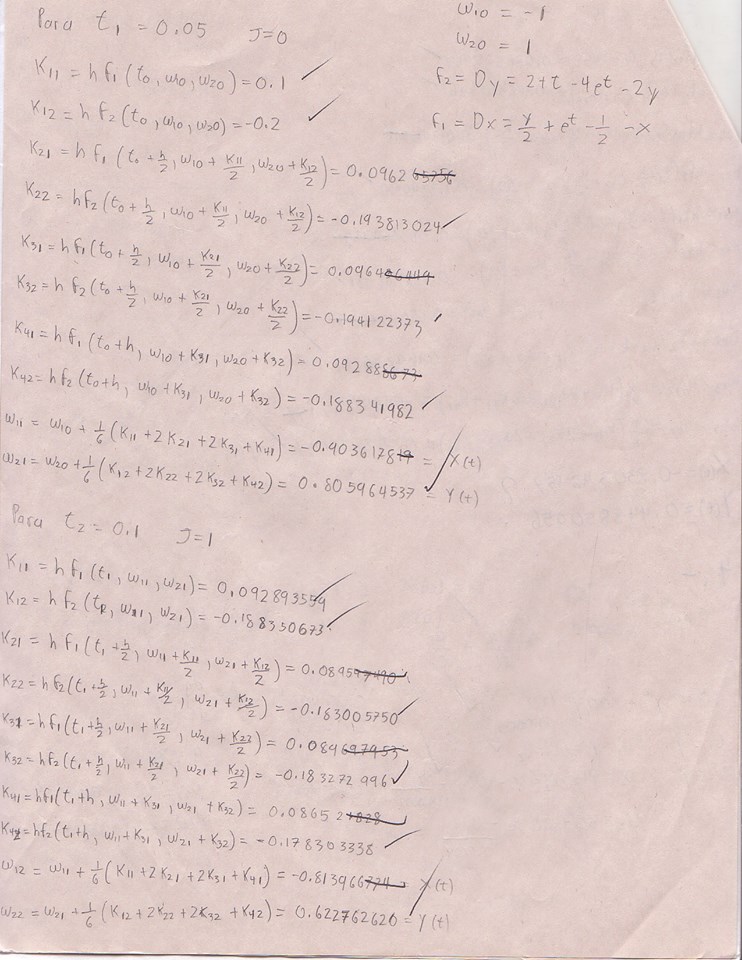 Para t₁ = 0.05 J=0
w₁₀ = -1
w₂₀ = 1
F₂ = Dy = 2+t -4eᵗ -2y
F₁ = Dx = y/2 + eᵗ - 1/2 - x
K₁₁ = h f₁(t₀, w₁₀, w₂₀) = 0.1 ✓
K₁₂ = h f₂(t₀, w₁₀, w₂₀) = -0.2 ✓
K₂₁ = h f₁(t₀ + h/2, w₁₀ + K₁₁/2, w₂₀ + K₁₂/2) = 0.0962
K₂₂ = h f₂(t₀ + h/2, w₁₀ + K₁₁/2, w₂₀ + K₁₂/2) = -0.193813024 ✓
K₃₁ = h f₁(t₀ + h/2, w₁₀ + K₂₁/2, w₂₀ + K₂₂/2) = 0.0964
K₃₂ = h f₂(t₀ + h/2, w₁₀ + K₂₁/2, w₂₀ + K₂₂/2) = -0.194122373
K₄₁ = h f₁(t₀+h, w₁₀ + K₃₁, w₂₀ + K₃₂) = 0.0928
K₄₂ = h f₂(t₀+h, w₁₀ + K₃₁, w₂₀ + K₃₂) = -0.188341982 ✓
w₁₁ = w₁₀ + 1/6 (K₁₁ + 2K₂₁ + 2K₃₁ + K₄₁) = -0.9036178 = X(t)
w₂₁ = w₂₀ + 1/6 (K₁₂ + 2K₂₂ + 2K₃₂ + K₄₂) = 0.805964537 = Y(t)
Para t₂ = 0.1 J=1
K₁₁ = h f₁(t₁, w₁₁, w₂₁) = 0.092893554 ✓
K₁₂ = h f₂(t₁, w₁₁, w₂₁) = -0.188350673 ✓
K₂₁ = h f₁(t₁ + h/2, w₁₁ + K₁₁/2, w₂₁ + K₁₂/2) = 0.0895
K₂₂ = h f₂(t₁ + h/2, w₁₁ + K₁₁/2, w₂₁ + K₁₂/2) = -0.183005750 ✓
K₃₁ = h f₁(t₁ + h/2, w₁₁ + K₂₁/2, w₂₁ + K₂₂/2) = 0.0896
K₃₂ = h f₂(t₁ + h/2, w₁₁ + K₂₁/2, w₂₁ + K₂₂/2) = -0.183272996 ✓
K₄₁ = h f₁(t₁+h, w₁₁ + K₃₁, w₂₁ + K₃₂) = 0.0865
K₄₂ = h f₂(t₁+h, w₁₁ + K₃₁, w₂₁ + K₃₂) = -0.178303338 ✓
w₁₂ = w₁₁ + 1/6 (K₁₁ + 2K₂₁ + 2K₃₁ + K₄₁) = -0.813966 = X(t)
w₂₂ = w₂₁ + 1/6 (K₁₂ + 2K₂₂ + 2K₃₂ + K₄₂) = 0.622762620 = Y(t)